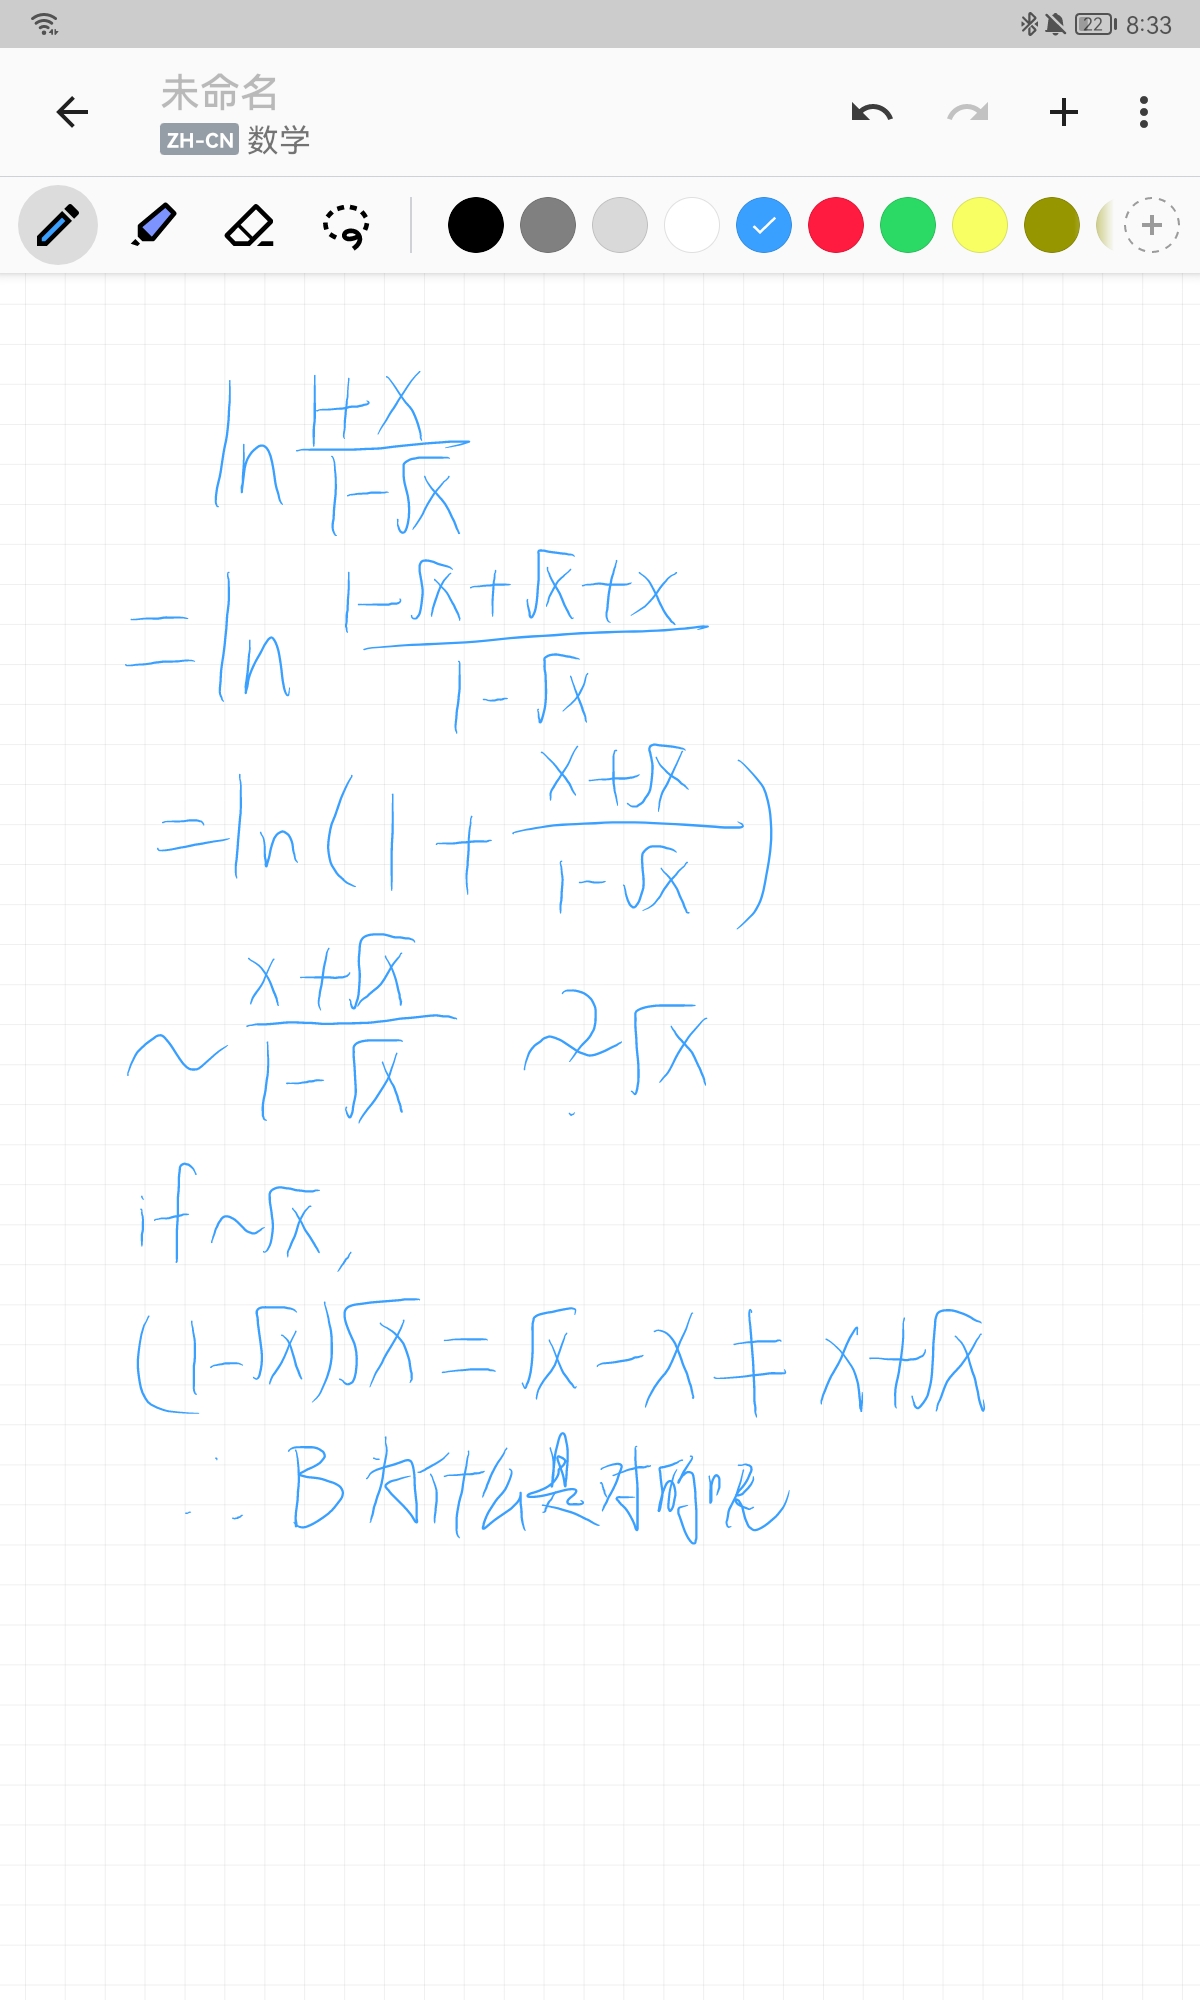 22 8:33
未命名
ZH-CN 数学
ln (1+x)/(1-√x)
=ln (1-√x+√x+x)/(1-√x)
=ln(1+(x+√x)/(1-√x))
~(x+√x)/(1-√x) ~2√x
if ~√x,
(1-√x)√x=√x-x≠x+√x
∴ B为什么是对的呢